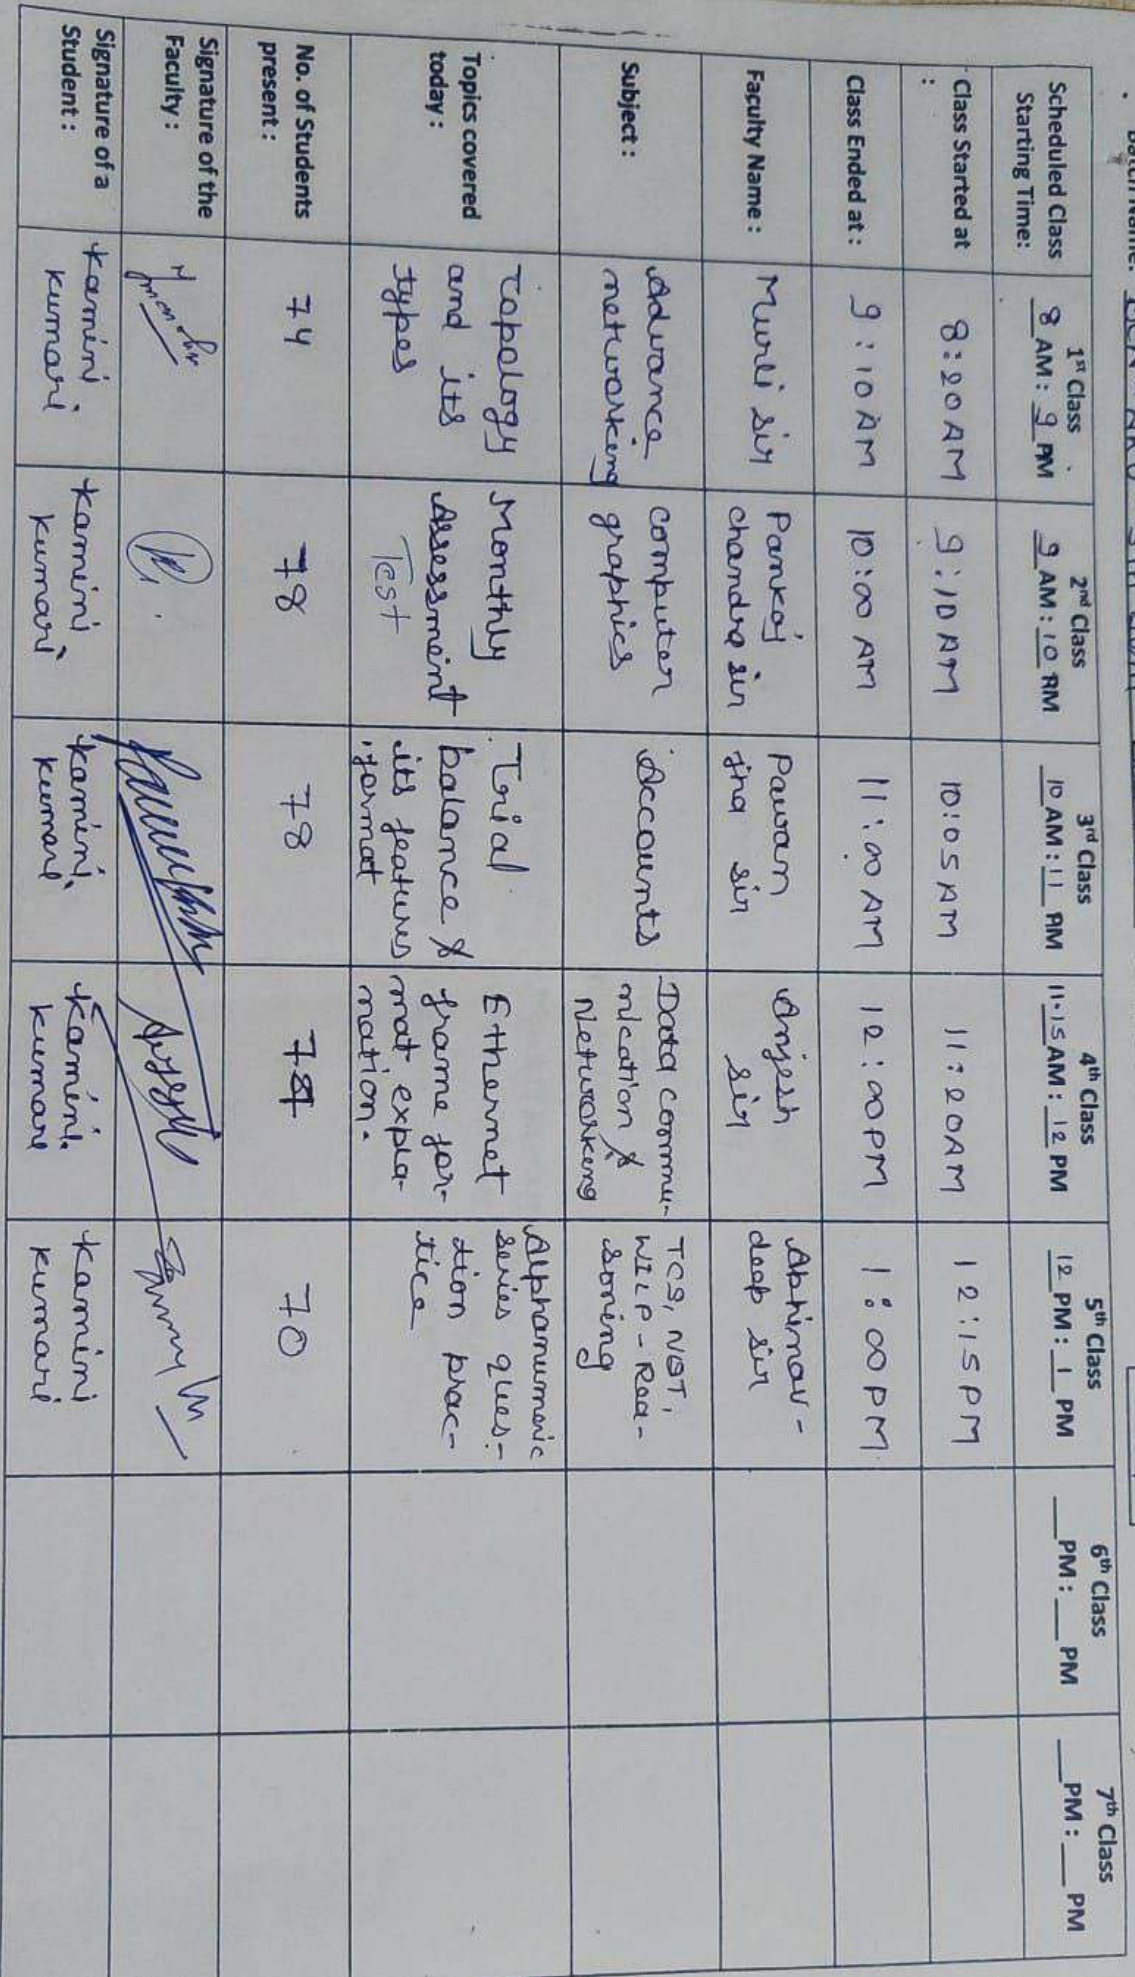 Scheduled Class Starting Time: 1st Class 8 AM: 9 PM 2nd Class 9 AM: 10 AM 3rd Class 10 AM: 11 AM 4th Class 11.15 AM: 12 PM 5th Class 12 PM: 1 PM 6th Class __PM: __ PM 7th Class __PM: __ PM
Class Started at : 8:20 AM 9:10 AM 10:05 AM 11:20AM 12:15 PM
Class Ended at : 9:10 AM 10:00 AM 11:00 AM 12:00PM 1:00 PM
Faculty Name : Murli sir Pankaj chandra sir Pawan jha sir Anjesh sir Abhinav-deep sir
Subject : Advance networking computer graphics Accounts Data commu-nication & Networking TCS, NQT, WILP-Rea-soning
Topics covered today : Topology and its types Monthly Assessment Test Trial balance & its features, format Ethernet frame for-mat expla-nation. Alphanumeric series ques-tion prac-tice
No. of Students present : 74 78 78 70
Signature of the Faculty :
Signature of a Student : Kamini Kumari Kamini Kumari Kamini Kumari Kamini Kumari Kamini Kumari